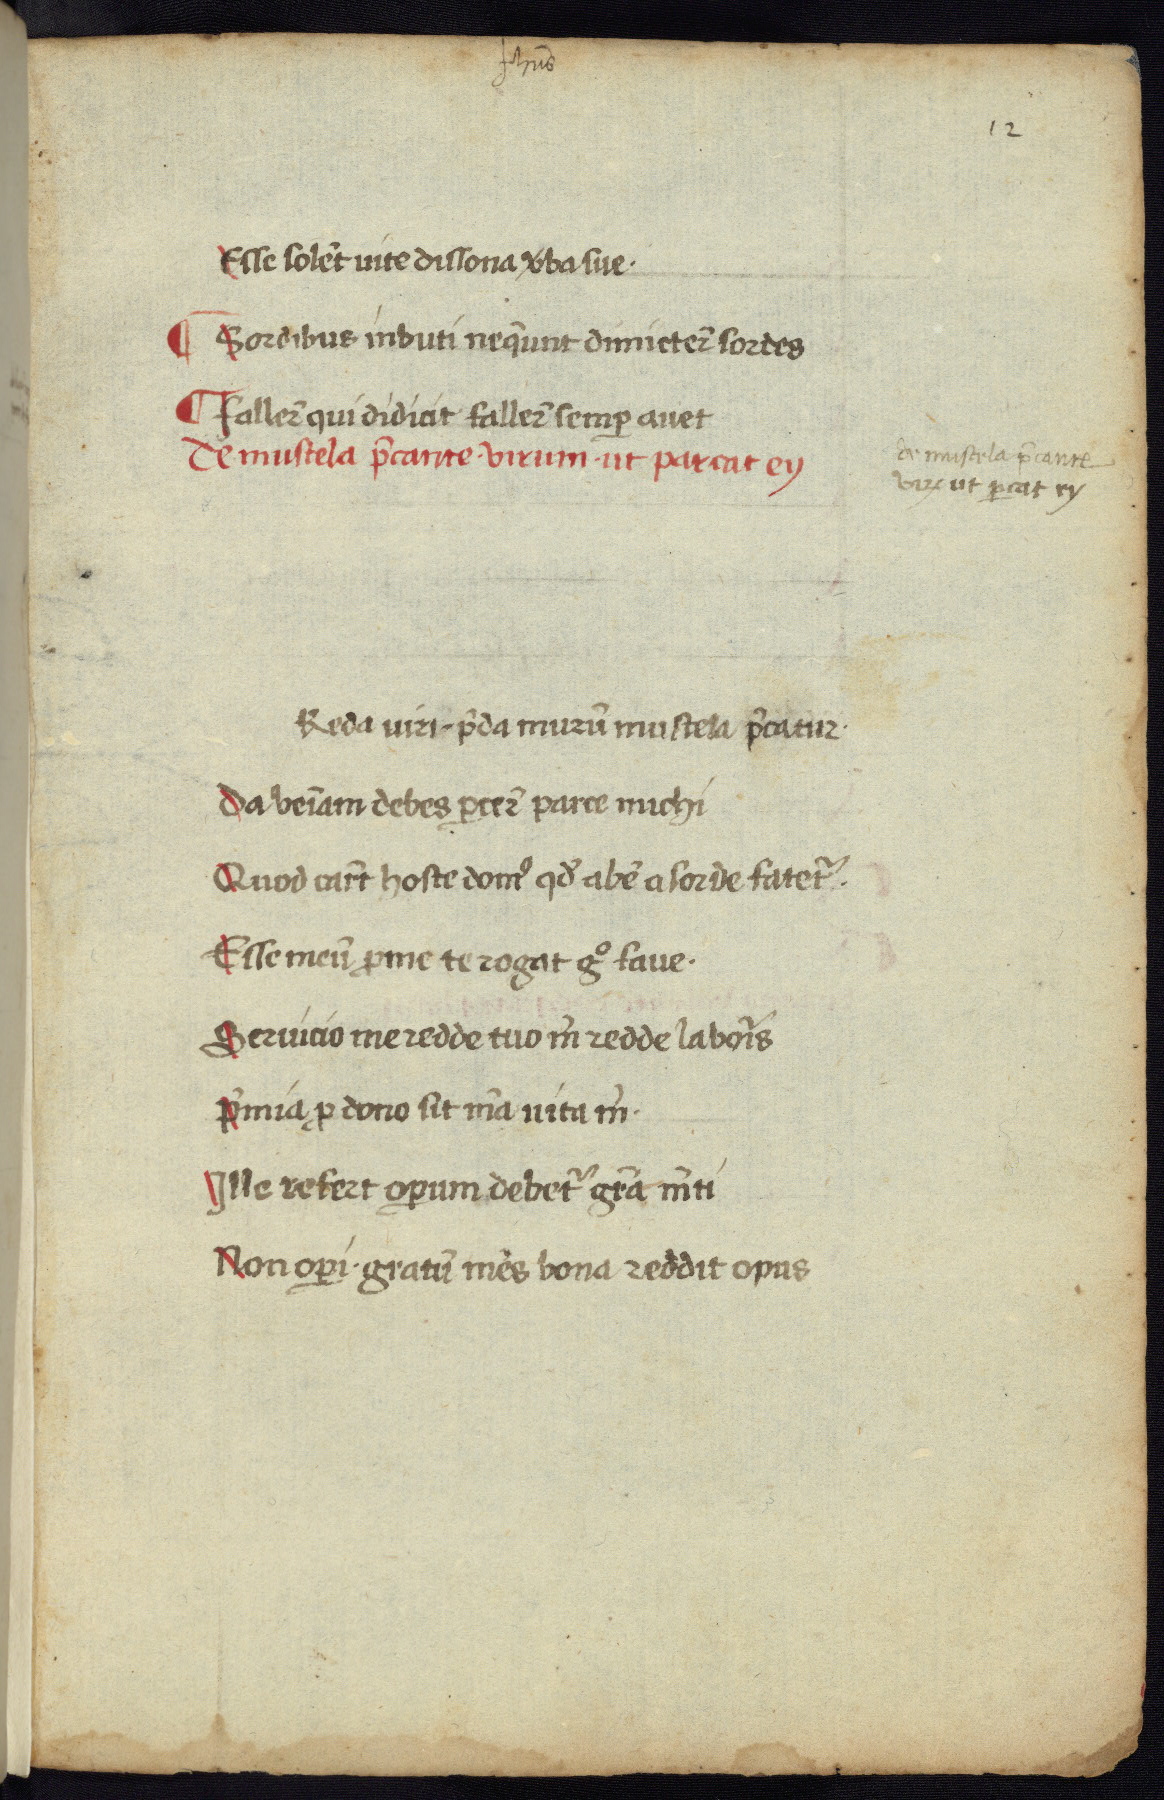 Jhūs
12
Esse solēt uite dissona v̄ba sue·
¶ Sordibus inbuti neq̄unt dimicter̄ sordes
¶ Faller̄ qui didicit faller̄ semꝑ auet
de mustela p̄cante virum ut parcat ey
de mustela p̄cante
virꝝ ut ꝑcat ey
Reda uiri p̄da murū mustela p̄catur·
Da veīam debes ꝑcer̄ parce michi
Quod car̄t hoste domꝰ qd̓ abē a sorde fatet᷑·
Esse meū ꝑ me te rogat gͦ faue·
Seruicio me redde tuo m̄ redde labor̄is
p̄mia ꝓ dono sit m̄a uita m̄·
Ille refert oꝑum debet᷑ gr̄a m̄ti
Non oꝑi· gratū mēs bona reddit opus